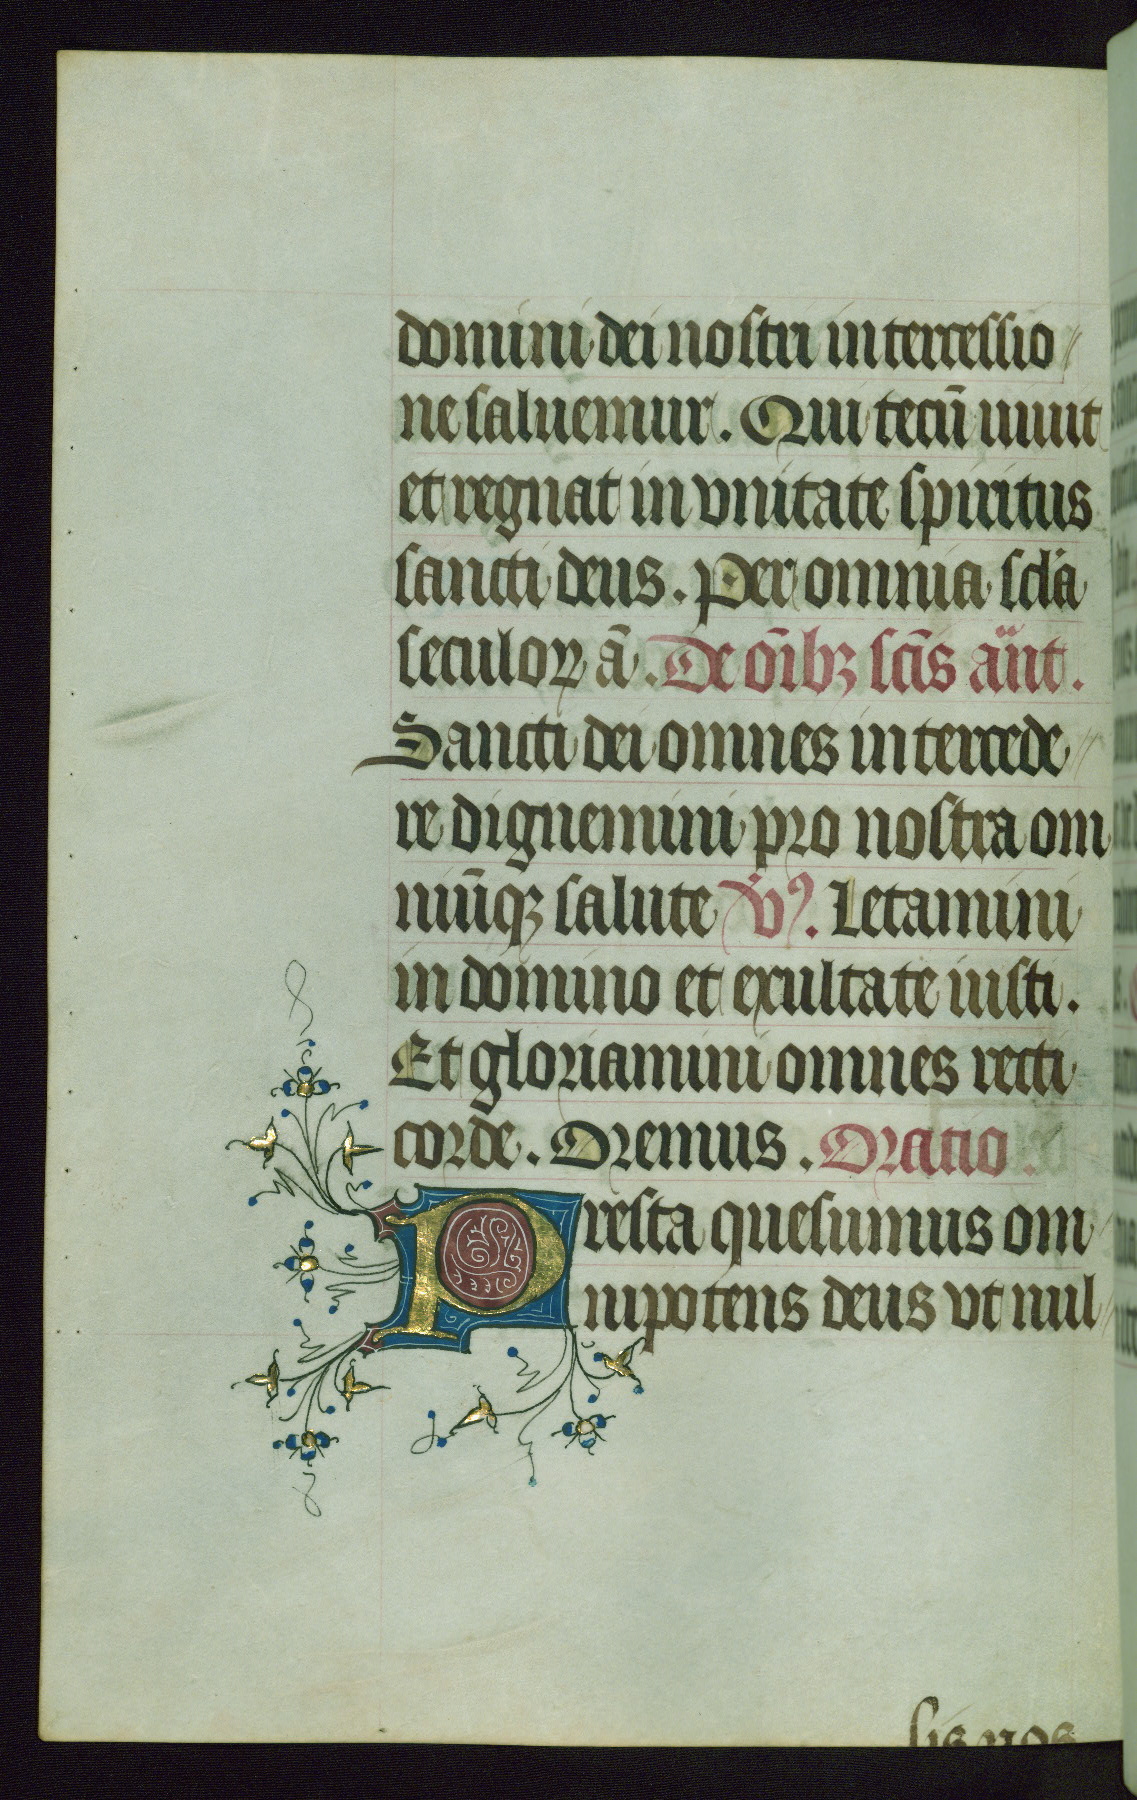 domini dei nostri intercessio
ne saluemur. Qui tecū uiuit
et regnat in vnitate spiritus
sancti deus. Per omnia scl'a
seculoꝝ ā. De oībꝫ scīs an̄t.
Sancti dei omnes intercede
re dignemini pro nostra om
niūqꝫ salute v̓. Letamini
in domino et exultate iusti.
Et gloriamini omnes recti
corde. Oremus. Oratio.
Presta quesumus om
nipotens deus vt nul
lis nos